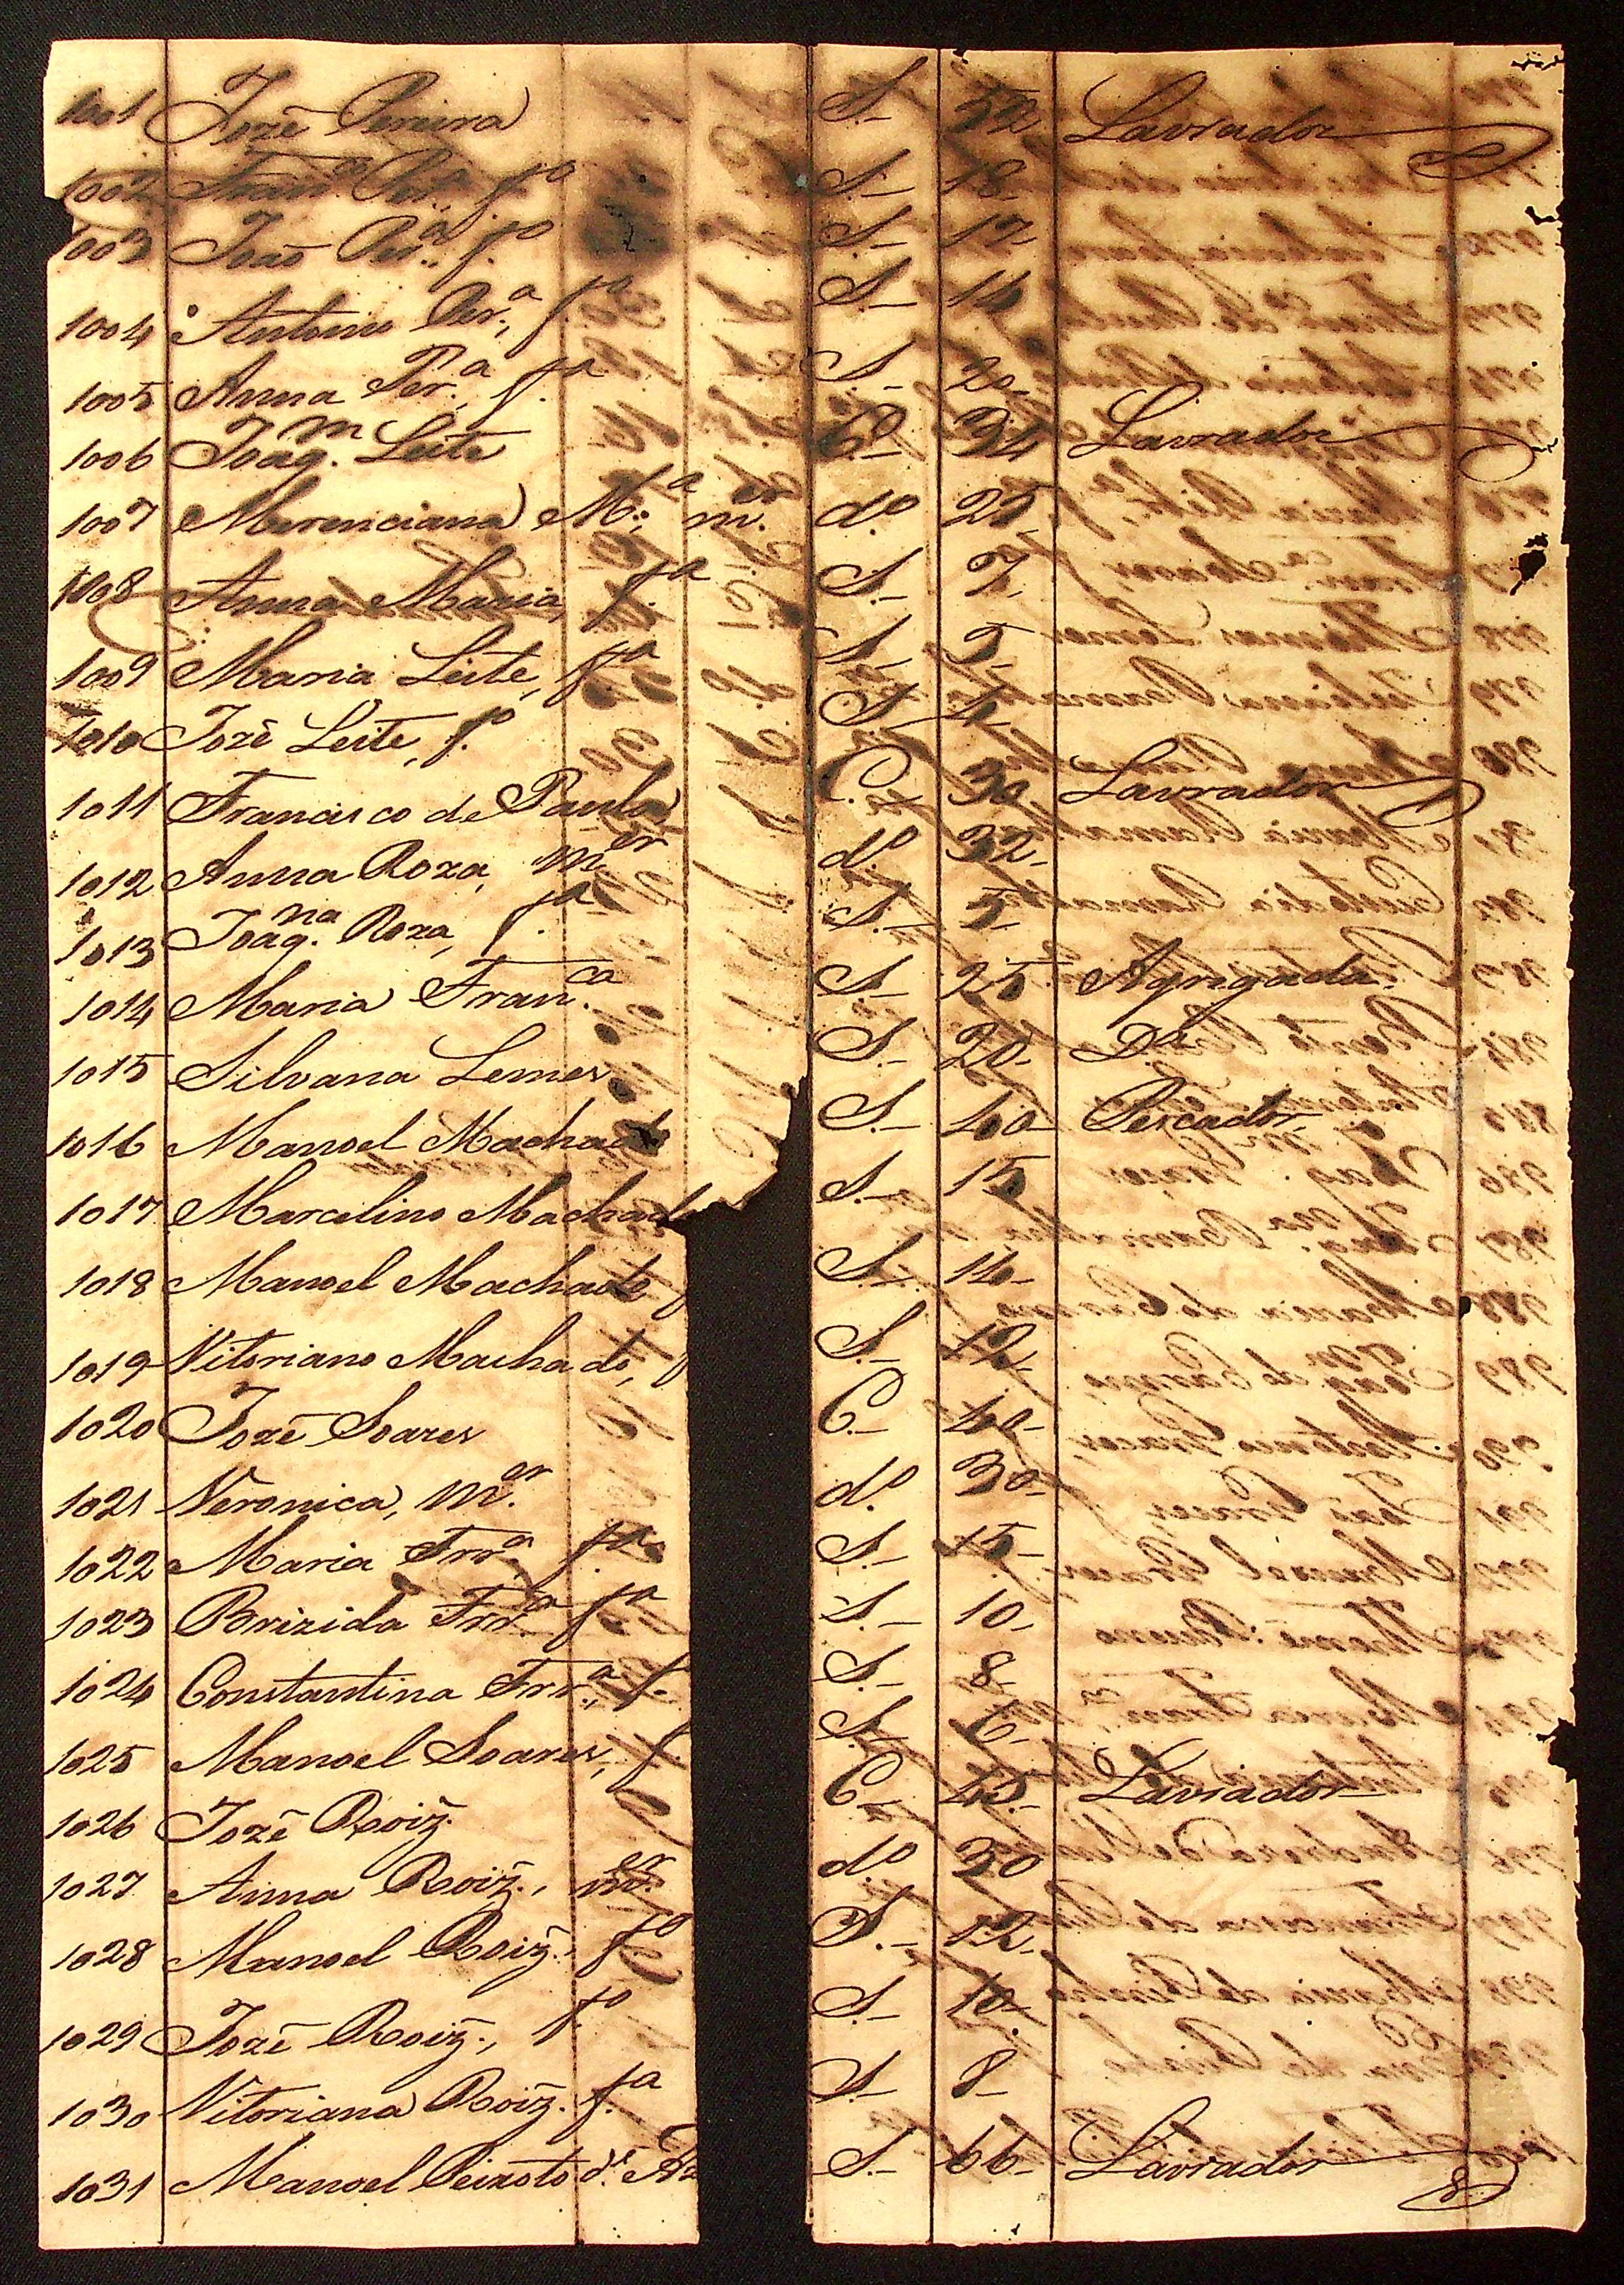 1001 Jozé Pereira S.- 52 Lavrador
1002 Fran.co Per.a, f.o S.- 18
1003 João Per.a, f.o S.- 17
1004 Antonio Per.a, f.o S.- 14
1005 Anna Per.a, f.a S.- 20
1006 Joaq.m Leite C.o 34 Lavrador
1007 Merenciana M.a, m.er d.o 25
1008 Anna Maria, f.a S.- 7
1009 Maria Leite, f.a S.- 5
1010 Jozé Leite, f.o S.- 4
1011 Francisco de Paula C.- 30 Lavrador
1012 Anna Roza, m.er d.o 32
1013 Joaq.na Roza, f.a S.- 5
1014 Maria Fran.ca S.- 25 Agregada
1015 Silvana Lemes S.- 20 D.a
1016 Manoel Machado S.- 40 Pescador
1017 Marcelino Machad S.- 15
1018 Manoel Machado S.- 14
1019 Vitoriano Machado, f S.- 12
1020 Jozé Soares C.- 40
1021 Veronica, m.er d.o 30
1022 Maria Frr.a f.a S.- 15
1023 Brizida Frr.a f.a S.- 10
1024 Constantina Frr.a, f. S.- 8
1025 Manoel Soares, f. S.- 6
1026 Jozé Roiz. C.- 45 Lavrador
1027 Anna Roiz., m.er d.o 30
1028 Manoel Roiz., f.o S.- 12
1029 Jozé Roiz., f.o S.- 10
1030 Vitoriana Roiz. f.a S.- 8
1031 Manoel Peixoto d.e S.- 66 Lavrador